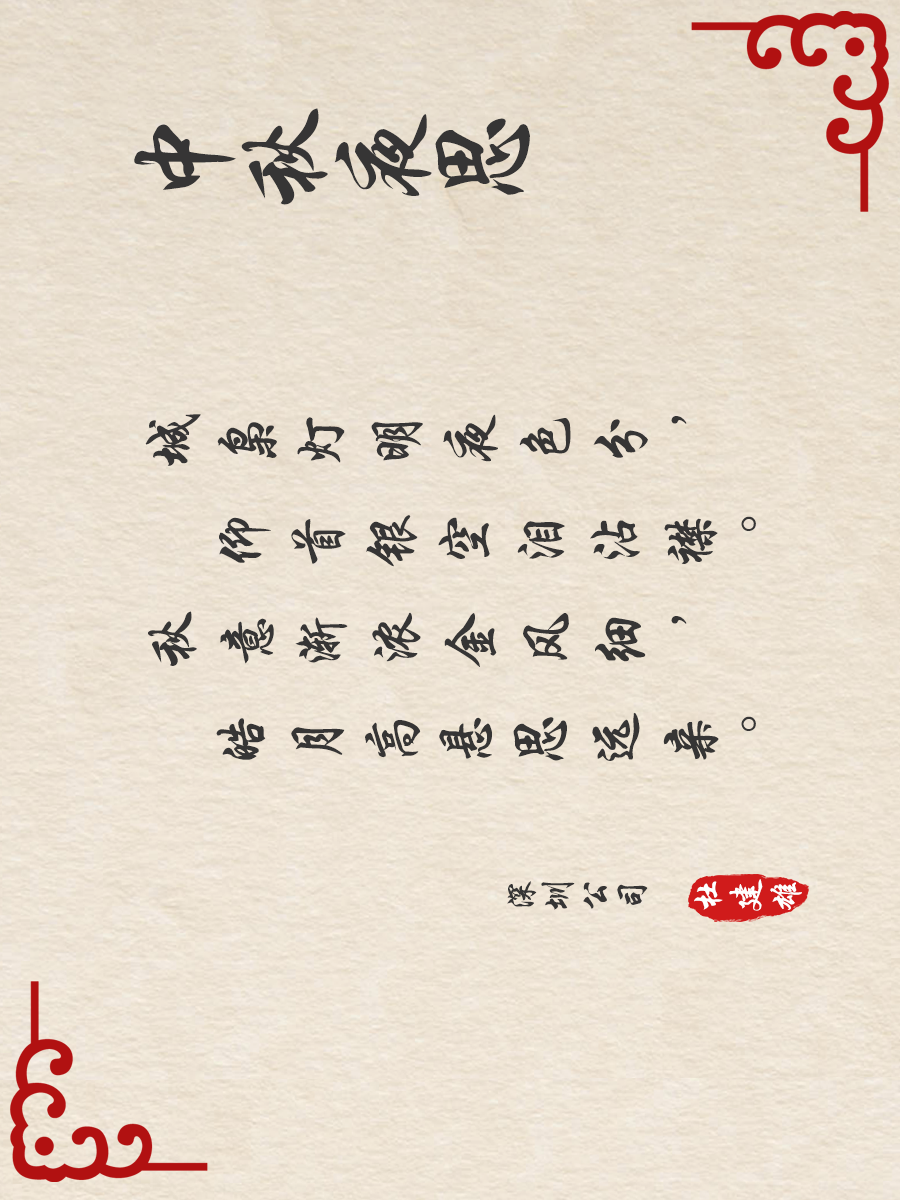 中秋夜思
城枭灯明夜色兮，
仰首银空泪沾襟。
秋意渐浓金风细，
皓月高悬思远亲。
深圳公司
杜建雄